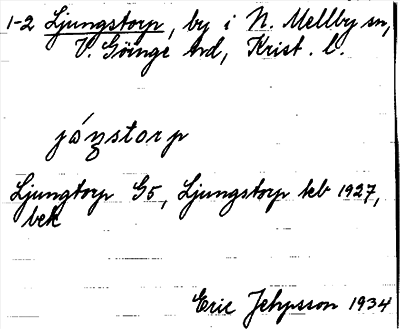 1-2 Ljungstorp, by i N. Mellby sn,
V. Göinge hd, Krist. l.
jáŋstorp
Ljungtorp G5, Ljungstorp keb 1927,
bek
Eric 1934